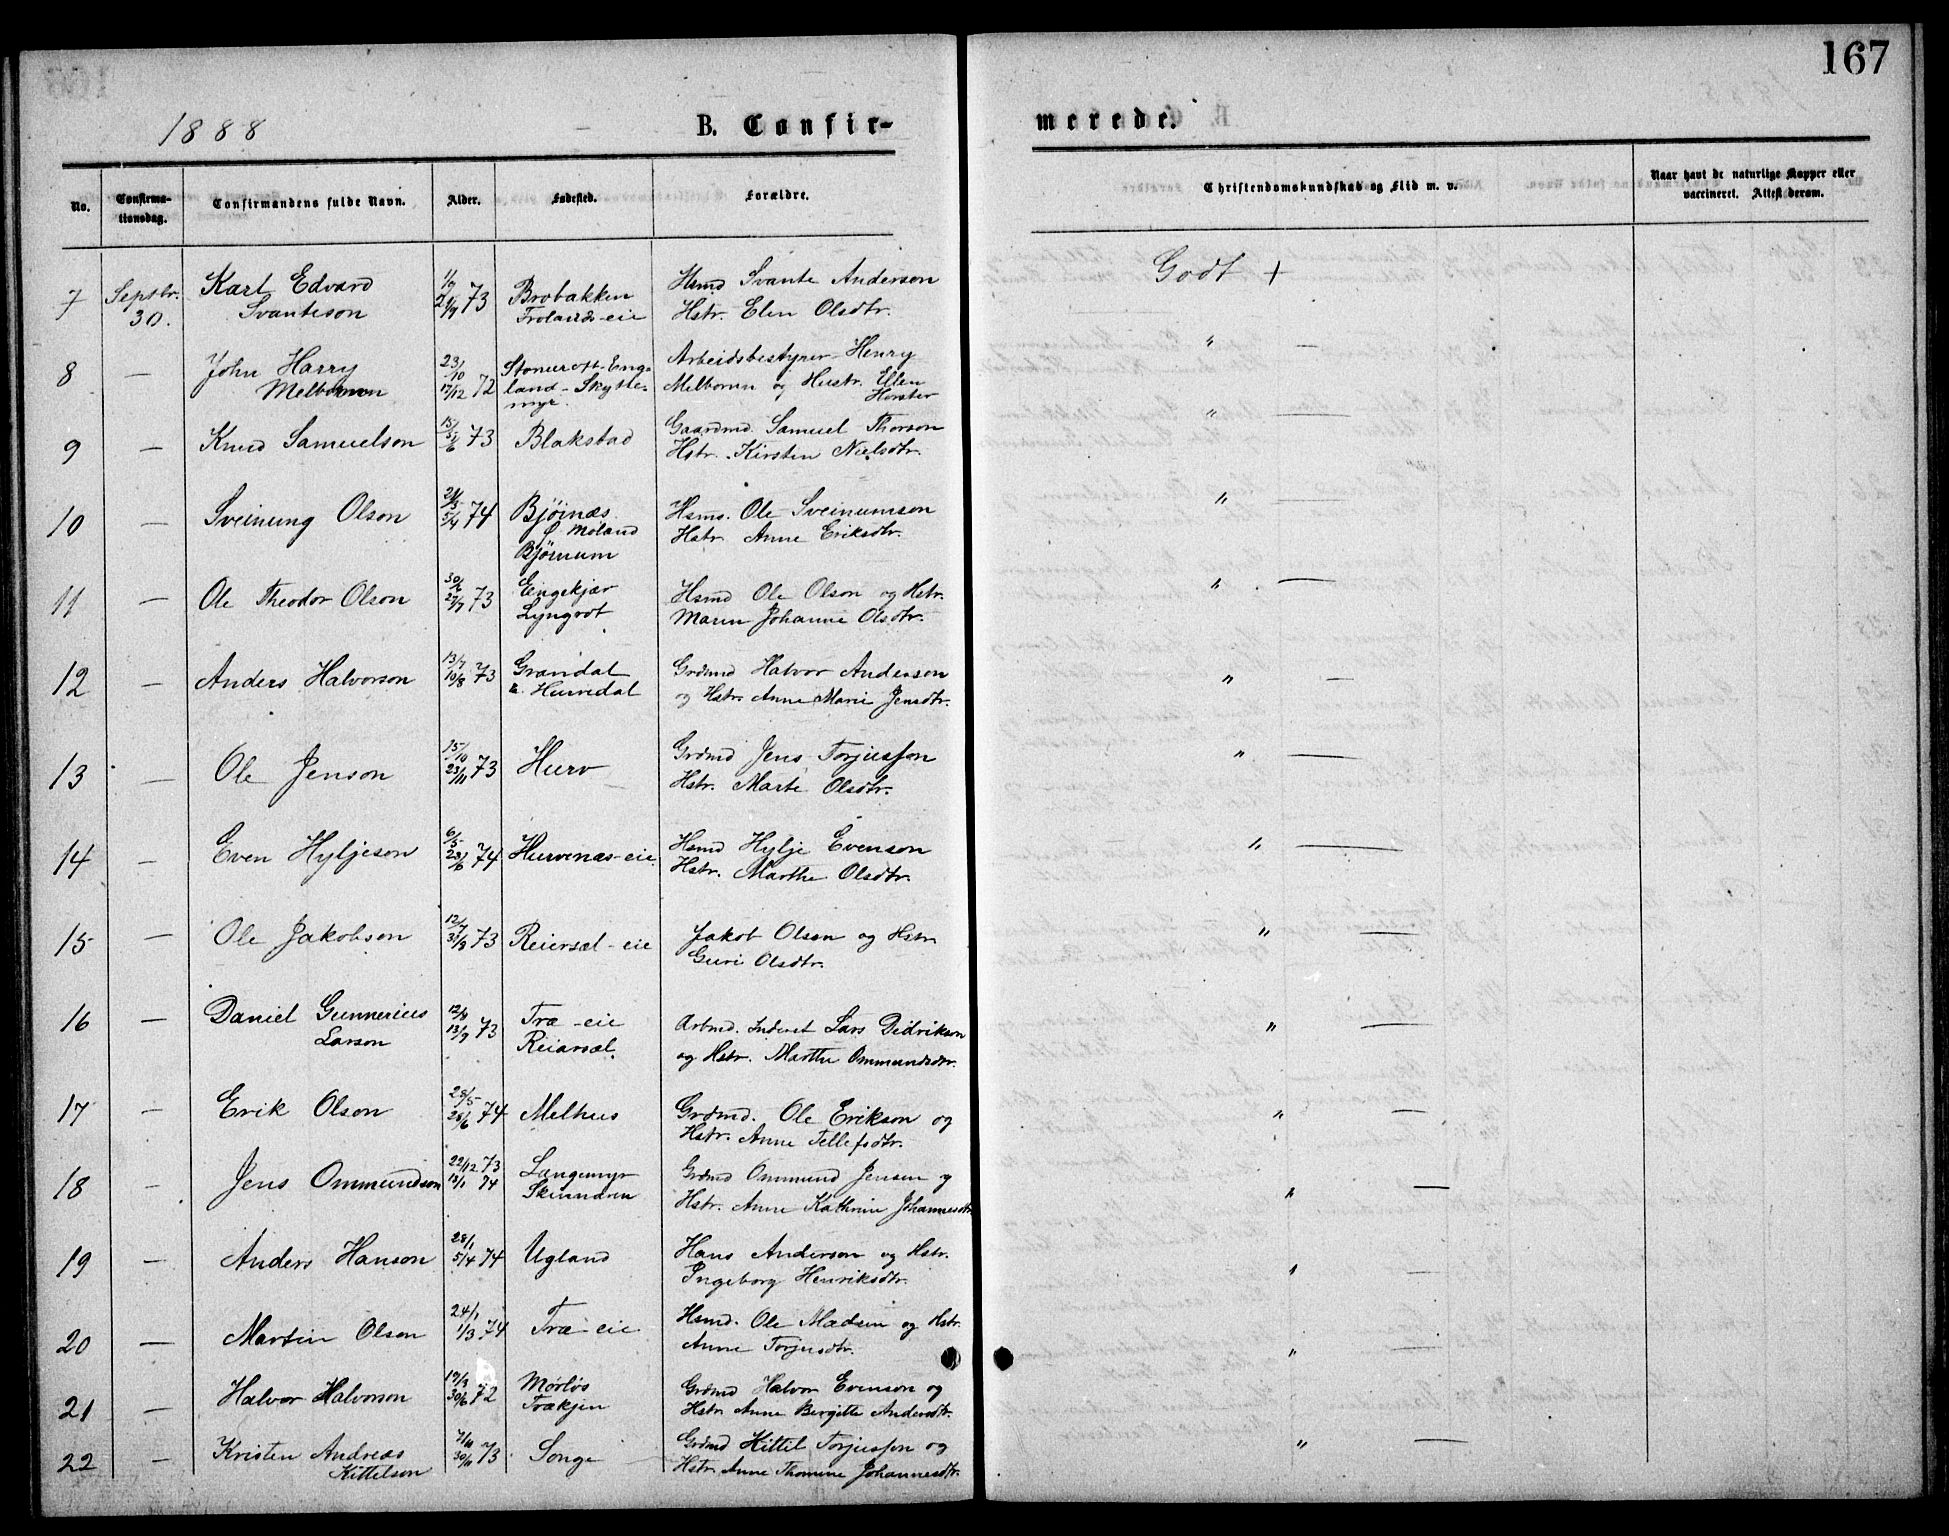 167
1888
B. Confir-
merede.
No.
Confirma-
tionsdag.
Confirmandens fulde Navn.
Alder.
Fødested.
Forældre.
Christendomskundskab og Flid m. v.
Naar havt de naturlige Kopper eller
vaccineret. Attest derom.
7 Septbr. 30. Karl Edvard Svanteson 73 Brobakken Froland-eie Hsmd Svante Anderson Hstr. Elen Olsdtr. Godt +
8 — John Harry 23/10 17/12 72 Arbeidsbestyrer Henry Melbourn og Hustr. Ellen " —
9 — Knud Samuelson 73 Blakstad Gaardmd. Samuel Thorson Hstr. Kirsten Nielsdtr. " —
10 — Sveinung Olson 5/4 74 Bjøinæs Ø. Moland Ole Sveinumson Hstr. Anne Eriksdtr. " —
11 — Ole Theodor Olson 27/7 73 Engekjær Hsmd Ole Olson og Hstr. Maren Johanne Olsdtr. " —
12 — Anders Halvorson 13/7 10/8 73 Grændal Grdmd Halvor Anderson og Hstr. Anne Marie Jensdtr. " —
13 — Ole Jenson 15/10 23/11 73 Hurv Grdmd Jens Torjusson Hstr. Marte Olsdtr. " —
14 — Even Hyljeson 6/5 74 Hurvenæs-eie Hsmd Hylje Evenson Hstr. Marthe Olsdtr. " —
15 — Ole Jakobson 73 Reiersæl-eie Jakob Olson og Hstr. Guri Olsdtr. " —
16 — Daniel Gunnerius Larson 73 Træ-eie Reiarsæl. Arbmd. Inderst Lars Didrikson og Hstr. Marthe Ommundsdtr. " —
17 — Erik Olson 28/5 28/6 74 Melhus Grdmd. Ole Erikson og Hstr. Anne Tellefsdtr. " —
18 — Jens Ommundson 22/12 73 13/1 74 Langemyr Grdmd Ommund Jensen og Hstr. Anne Kathrine Johannesdtr. " —
19 — Anders Hanson 28/1 5/4 74 Ugland Hans Anderson og Hstr. Ingeborg Henriksdtr. " —
20 — Martin Olsen 24/1 1/3 74 Træ-eie Hsmd. Ole Madsen og Hstr. Anne Torjusdtr. "
21 — Halvor Halvorson 30/6 72 Grdmd Halvor Evenson og Hstr. Anne Bergitte Andersdtr.
22 — Kristen Andreas Kittelson 7/11 30/11 73 Songe Grdmd Kittil Torjusson og Hstr. Anne Thomine Johannesdtr. " —